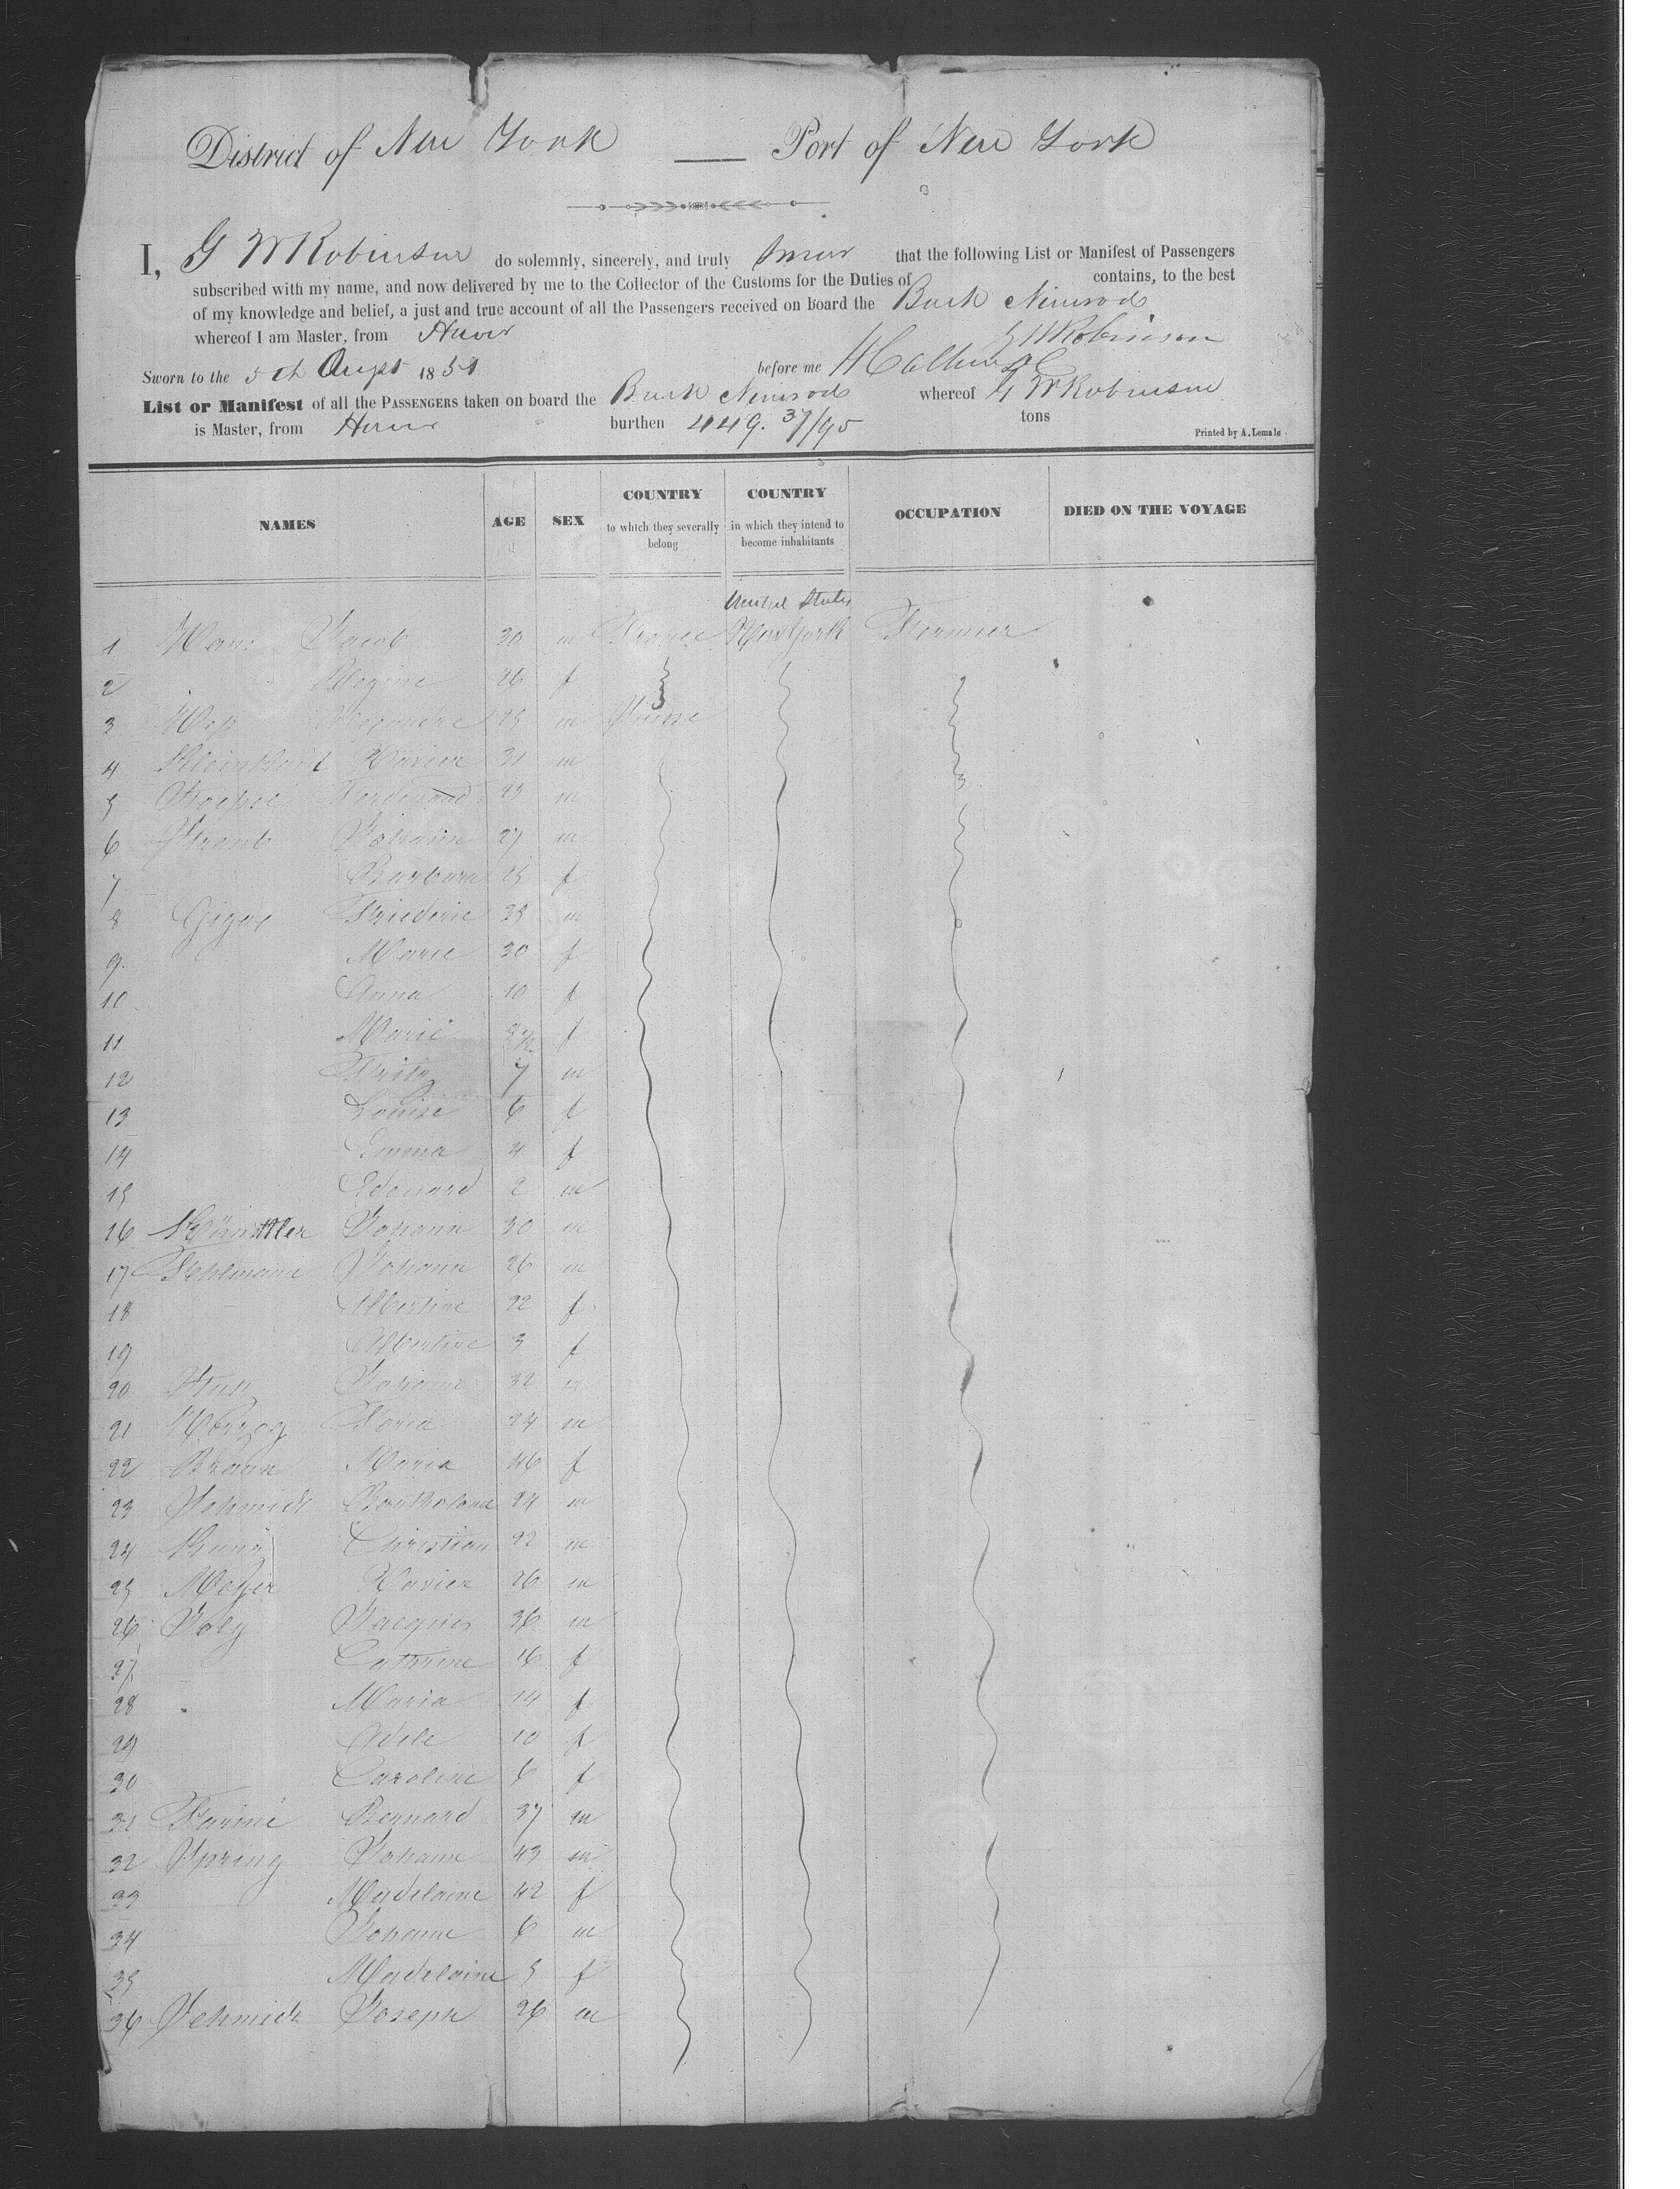 District of New York — Port of New York
I, G W Robinson do solemnly, sincerely, and truly swear that the following List or Manifest of Passengers
subscribed with my name, and now delivered by me to the Collector of the Customs for the Duties of contains, to the best
of my knowledge and belief, a just and true account of all the Passengers received on board the Bark Nimrod
whereof I am Master, from Havre
G W Robinson
Sworn to the 5th Augst 1851 before me
List or Manifest of all the PASSENGERS taken on board the Bark Nimrod whereof G W Robinson
is Master, from Havre burthen 449. 37/95 tons
Printed by A. Lemale
NAMES AGE SEX COUNTRY to which they severally belong COUNTRY in which they intend to become inhabitants OCCUPATION DIED ON THE VOYAGE
United States
1 Jacob 30 m France New York Farmer
2 Regine 26 f
3 25 m Suisse
4 Xavier 31 m
5 Ferdinand 23 m
6 Johann 27 m
7 Barbara 25 f
8 Giger Friederic m
9 Marie 30 f
10 Anna 10 f
11 Marie f
12 Fritz 7 m
13 Louise 6 f
14 Emma 4 f
15 Edouard 2 m
16 Johann 30 m
17 Fehlmann Johann 26 m
18 Albertine 22 f
19 Albertine 3 f
20 Johann 32 m
21 Herzog 24 m
22 Braun Maria 46 f
23 Schmidt 24 m
24 Christian 22 m
25 Meyer Xavier 26 m
26 Joly Jacques 36 m
27 Cathrine 16 f
28 Maria 14 f
29 Adele 10 f
30 Caroline 6 f
31 Farine Bernard 37 m
32 Spring Johann 43 m
33 Madelaine 42 f
34 Johann 6 m
35 Madelaine 5 f
36 Schmidt Joseph 26 m